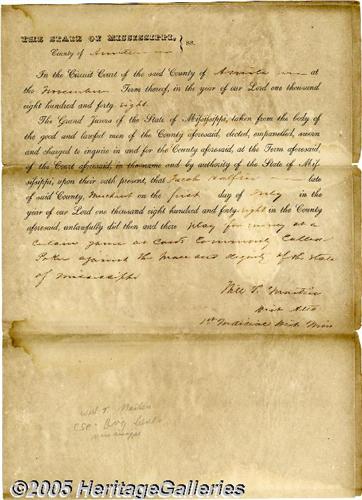 THE STATE OF MISSISSIPPI, } ss.
County of
In the Circuit Court of the said County of at
the November Term thereof, in the year of our Lord one thousand
eight hundred and forty eight.
The Grand Jurors of the State of Mississippi, taken from the body of
the good and lawful men of the County aforesaid, elected, empannelled, sworn
and charged to inquire in and for the County aforesaid, at the Term aforesaid,
of the Court aforesaid, in the name and by authority of the State of Mis-
sissippi, upon their oath present, that Jacob late
of said County, Merchant on the first day of July in the
year of our Lord one thousand eight hundred and forty eight in the County
aforesaid, unlawfully did then and there play for money at a
certain game at cards commonly called
Poker against the peace and dignity of the State
of Mississippi
Will T. Martin
Dist Atto
1st Judicial Dist Miss
Will T. Martin
CSA
©2005 HeritageGalleries